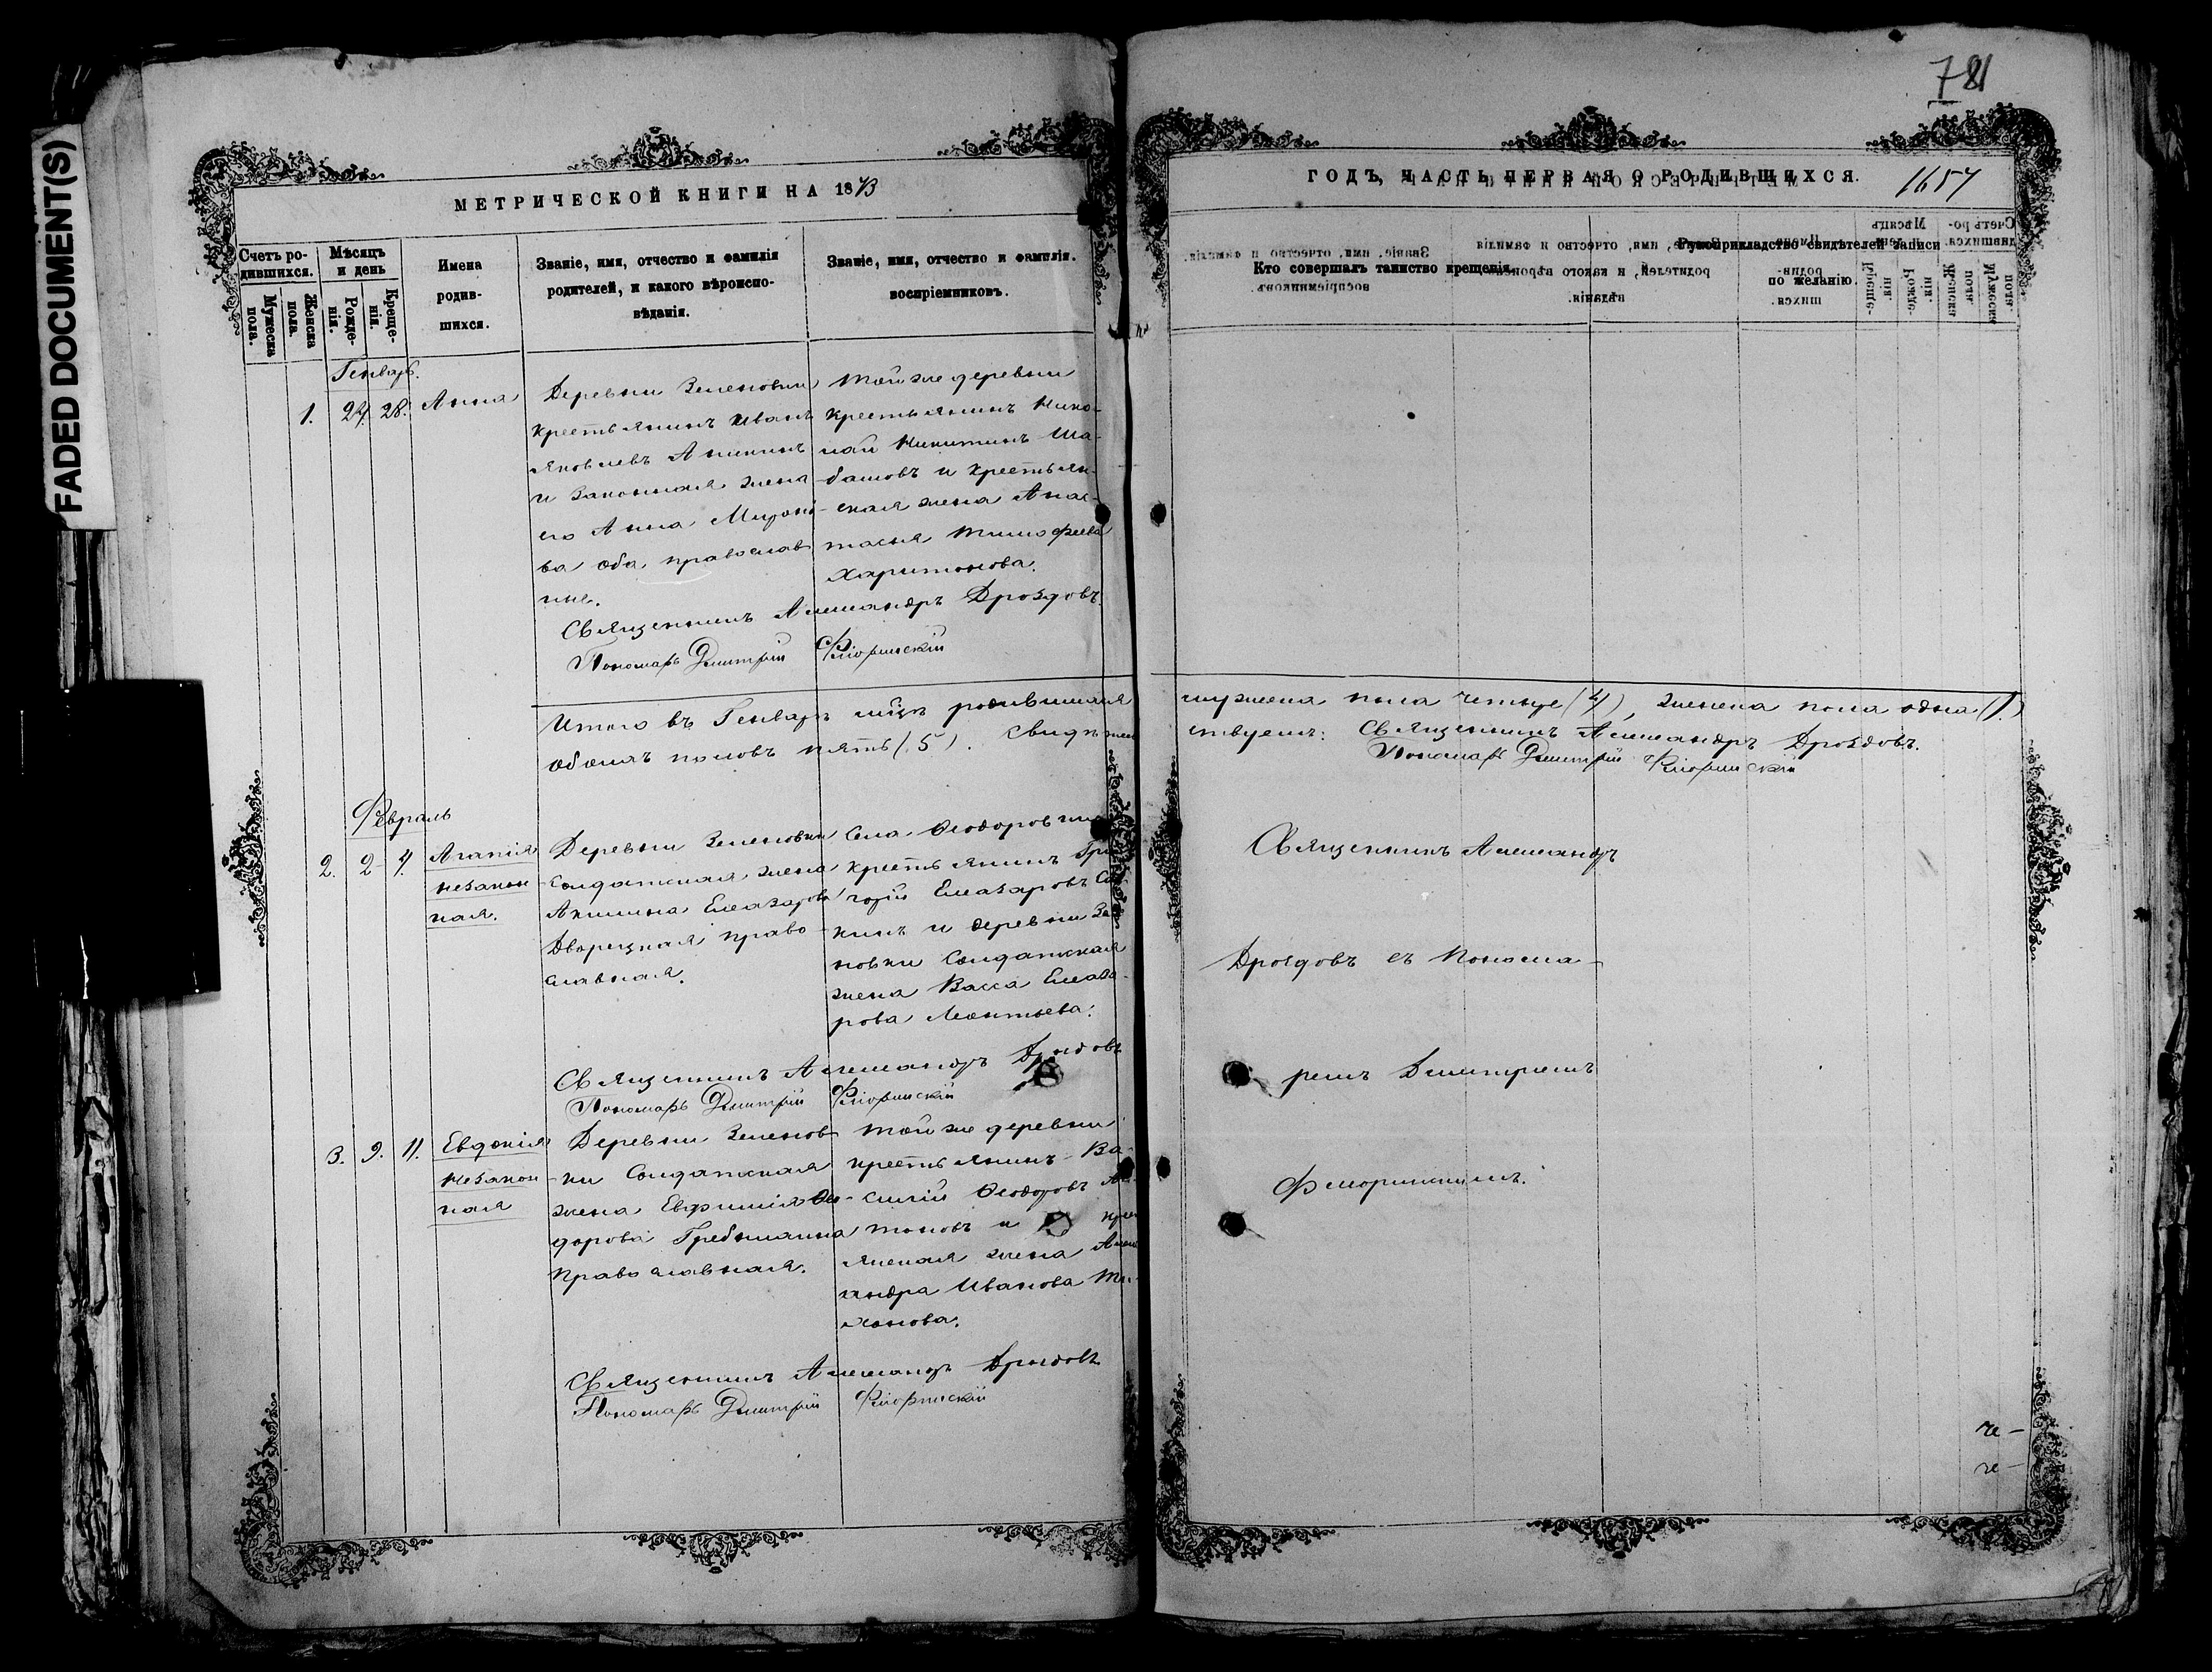 FADED DOCUMENT(S)
МЕТРИЧЕСКОЙ КНИГИ НА 1873
Счетъ ро-
дившихся.
Мужеска
пола.
Женска
пола.
Мѣсяцъ
и день
Рожде-
нія.
Креще-
нія.
Имена
родив-
шихся.
Званіе, имя, отчество и фамилія
родителей, и какого вѣроиспо-
вѣданія.
Званіе, имя, отчество и фамилія.
воспріемниковъ.
Генварь.
1. 24. 28. Анна
Деревни Зеленовки
крестьянинъ Иванъ
Яковлевъ Аникинъ
и законная жена
его Анна Мироно-
ва оба православ
ные.
той же деревни
крестьянинъ Нико-
лай Никитинъ Ша-
башовъ и крестьян-
ская жена Анас-
тасья Тимофеева
Харитонова.
Священникъ Александръ Дроздовъ.
Пономарь Дмитрій Флоринскій
Итого въ Генварѣ мцѣ родившихся
обоихъ половъ пять (5). Свидѣтель
Февраль
2. 2 4. Агапія
незакон
ная.
Деревни Зеленовки
солдатская жена
Акилина Елеазарова
Дворецкая право-
славная.
Села Ѳеодоровки
крестьянинъ Гри
горій Елеазаровъ
кинъ и деревни Зе
новки солдатская
жена Васса Елеаза-
рова Леонтьева.
Священникъ Александръ Дроздовъ
Пономарь Дмитрій Флоринскій
3. 9. 11. Евдокія
незакон
ная
Деревни Зеленов-
ки Солдатская
жена Евфимія Ѳео-
дорова Гребнкина
православная.
той же деревни
крестьянинъ Ва-
силій Ѳеодоровъ
тоновъ и крес
янская жена Алек
сандра Иванова Ти-
хонова.
Священникъ Александръ Дроздовъ
Пономарь Дмитрій Флоринскій
781
ГОДЪ, ЧАСТЬ ПЕРВАЯ О РОДИВШИХСЯ.
1657
Кто совершалъ таинство крещенія.
Рукоприкладство свидѣтелей записи
по желанію.
мужеска пола четыре (4), женска пола одна (1.)
ствуемъ: Священникъ Александръ Дроздовъ.
Пономарь Дмитрій Флоринскій
Священникъ Александръ
Дроздовъ съ Понома-
ремъ Димитріемъ
Флоринскимъ.
че-
че-